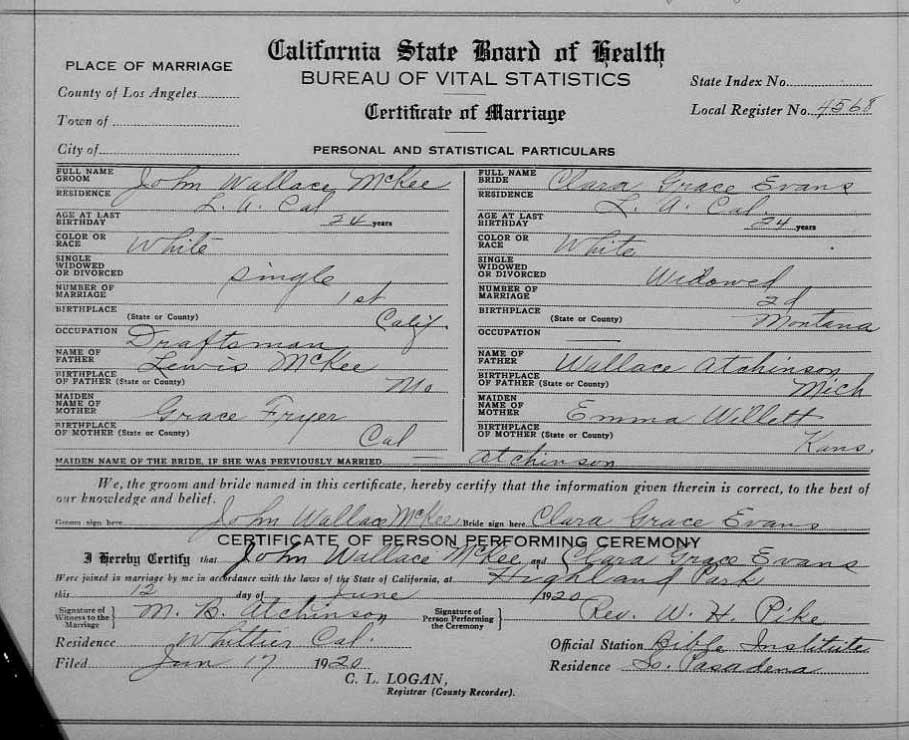 California State Board of Health
PLACE OF MARRIAGE
BUREAU OF VITAL STATISTICS
State Index No.
County of Los Angeles
Certificate of Marriage
Local Register No. 4568
Town of
City of
PERSONAL AND STATISTICAL PARTICULARS
FULL NAME GROOM John Wallace McKee
RESIDENCE L. A. Cal
AGE AT LAST BIRTHDAY 24 years
COLOR OR RACE White
SINGLE WIDOWED OR DIVORCED single
NUMBER OF MARRIAGE 1st
BIRTHPLACE (State or County) Calif.
OCCUPATION Draftsman
NAME OF FATHER Lewis McKee
BIRTHPLACE OF FATHER (State or County) Mo
MAIDEN NAME OF MOTHER Grace Fryer
BIRTHPLACE OF MOTHER (State or County) Cal
FULL NAME BRIDE Clara Grace Evans
RESIDENCE L. A. Cal.
AGE AT LAST BIRTHDAY 24 years
COLOR OR RACE White
SINGLE WIDOWED OR DIVORCED Widowed
NUMBER OF MARRIAGE 2d
BIRTHPLACE (State or County) Montana
OCCUPATION —
NAME OF FATHER Wallace Atchinson
BIRTHPLACE OF FATHER (State or County) Mich
MAIDEN NAME OF MOTHER Emma Willett
BIRTHPLACE OF MOTHER (State or County) Kans.
MAIDEN NAME OF THE BRIDE, IF SHE WAS PREVIOUSLY MARRIED — Atchinson
We, the groom and bride named in this certificate, hereby certify that the information given therein is correct, to the best of
our knowledge and belief.
Groom sign here John Wallace McKee Bride sign here Clara Grace Evans
CERTIFICATE OF PERSON PERFORMING CEREMONY
I Hereby Certify that John Wallace McKee and Clara Grace Evans
Were joined in marriage by me in accordance with the laws of the State of California, at Highland Park
this 12 day of June 1920
Signature of Witness to the Marriage } M. B. Atchinson
Signature of Person Performing the Ceremony } Rev. W. H. Pike
Residence Whittier Cal.
Official Station Bible Institute
Filed Jun 17 1920
Residence So. Pasadena
C. L. LOGAN,
Registrar (County Recorder).